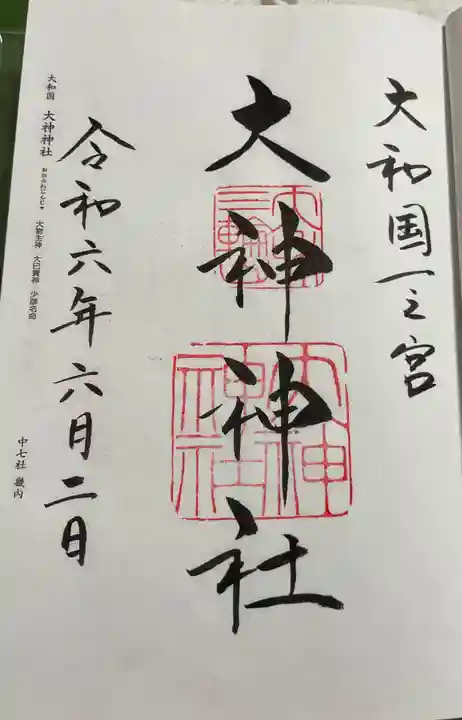 大和国一之宮
大神神社
令和六年六月二日
大和国 大神神社 おおみわじんじゃ 大物主神 大己貴神 少彦名命
中七社 畿内